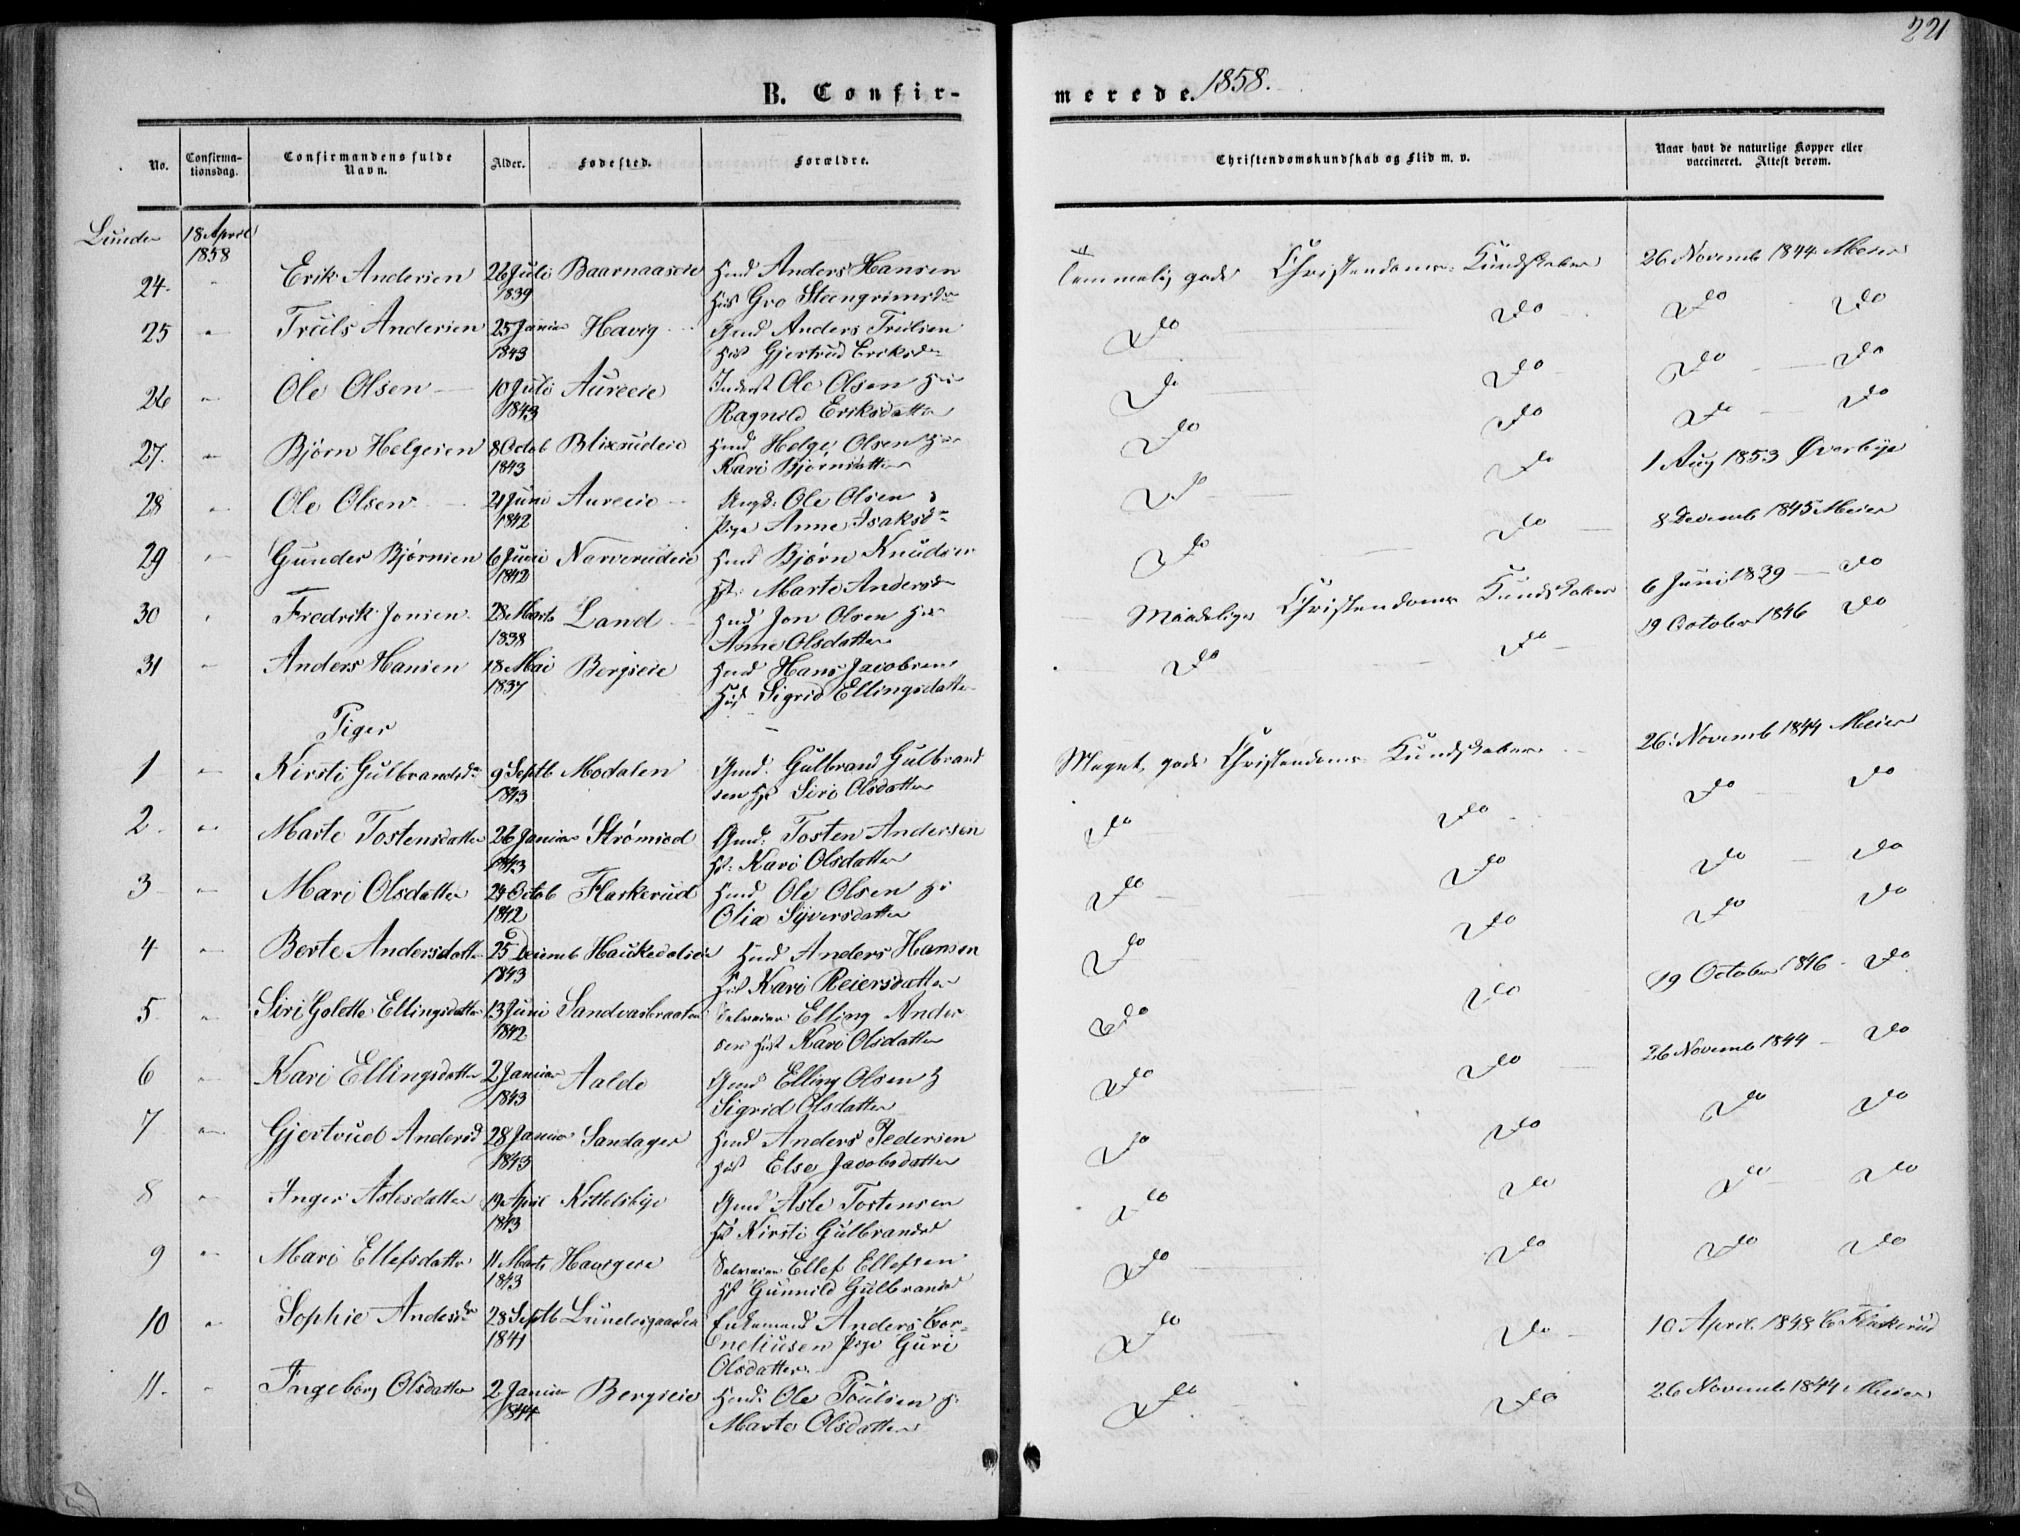 221
B. Confir-
merede. 1858.
No.
Confirma-
tionsdag.
Confirmandens fulde
Navn.
Alder.
Fødested.
Forældre.
Christendomskundskab og Flid m. v.
Naar havt de naturlige Kopper eller
vaccineret. Attest derom.
Lunder 18 April
1858
24. " Erik Andersen 26 Juli Baarnaaseie Hmd Anders Hansen Temmelig gode Christendoms- Kundskaber 26 Novemb 1844 Meier
1839 Hus Gro Steengrimsdr
25 " Truls Andersen 25 Januar Havig Gmd Anders Trulsen Do Do Do Do
1843 Hus Gjertrud Eriksdr
26 " Ole Olsen 10 Juli Aureeie Inderst Ole Olsen Hus Do Do Do Do
1843 Ragnild Eriksdatter
27. " Bjørn Helgesen 8 Octob Blixrudeie Hmd Helge Olsen Hus Do Do Do Do
1843 Kari Bjørnsdatter
28 " Ole Olsen 21 Juni Aureeie Ungk: Ole Olsen Do Do 1 Aug 1853 Øverbye
1842 Pige Anne Isaksdr
29 " Gunder Bjørnsen 6 Juni Norverudeie Hmd Bjørn Knudsen Do Do 8 Decemb 1845 Meier
1842 Hs: Marte Andersdr
30 " Fredrik Jonsen 28 Marts Land Hmd Jon Olsen Hus Maadelige Christendoms Kundskaber 6 Juni 1839 Do
1838 Anne Olsdatter
31 " Anders Hansen 18 Mai Bergseie Hmd Hans Jacobsen Do Do 19 October 1846 Do
1837 Hus Sigrid Ellingsdatter
Piger
1 " Kirsti Gulbrandsdr 9 Septb Modalen Gmd. Gulbrand Gulbrand Meget gode Christendoms Kundskaber 26 Novemb 1844 Meier
1843 sen Hs Siri Olsdatter
2 " Marte Tostensdatter 26 Januar Strømsod Gmd: Tosten Andersen Do Do Do Do
1843 Hs: Kari Olsdatter
3 " Mari Olsdatter 24 Octob Flaskerud Hmd Ole Olsen Hs Do Do Do Do
1842 Olia Syversdatter
4 " Berte Andersdatter 25 Decemb Haukedalen Hmd Anders Hansen Do Do Do Do
1843 Hus Kari Reiersdatter
5 " Siri Golette Ellingsdatter 13 Juni Sandvasbraaten Selveier Elling Ander Do Do 19 October 1846 Do
1842 sen Hust Kari Olsdatter
6 " Kari Ellingsdatter 2 Januar Aalde Gmd Elling Olsen Do Do 26 Novemb 1844 Do
1843 Sigrid Olsdatter
7 " Gjertrud Andersd 28 Januar Sandager Hmd Anders Pedersen Do Do Do Do
1843 Hus Else Jacobsdatter
8 " Inger Aslesdatter 19 April Kittelsbye Gmd Asle Tostensen Do Do Do Do
1843 Hs Kirsti Gulbrandsd
9 " Mari Ellefsdatter 11 Marts Havigeie Selveier Ellef Ellefsen Do Do Do Do
1843 Hs Gunnild Gulbrandsd
10 " Sophie Andersdr 28 Septb Lundesgaarden Enkemand Anders Cor- Do Do 10 April 1848 C Flaskerud
1841 neliusen Pige Guri
Olsdatter
11. " Ingeborg Olsdatter 2 Januar Bergseie Hmd: Ole Poulsen H: Do Do 26 Novemb 1844 Meier
1844 Marte Olsdatter